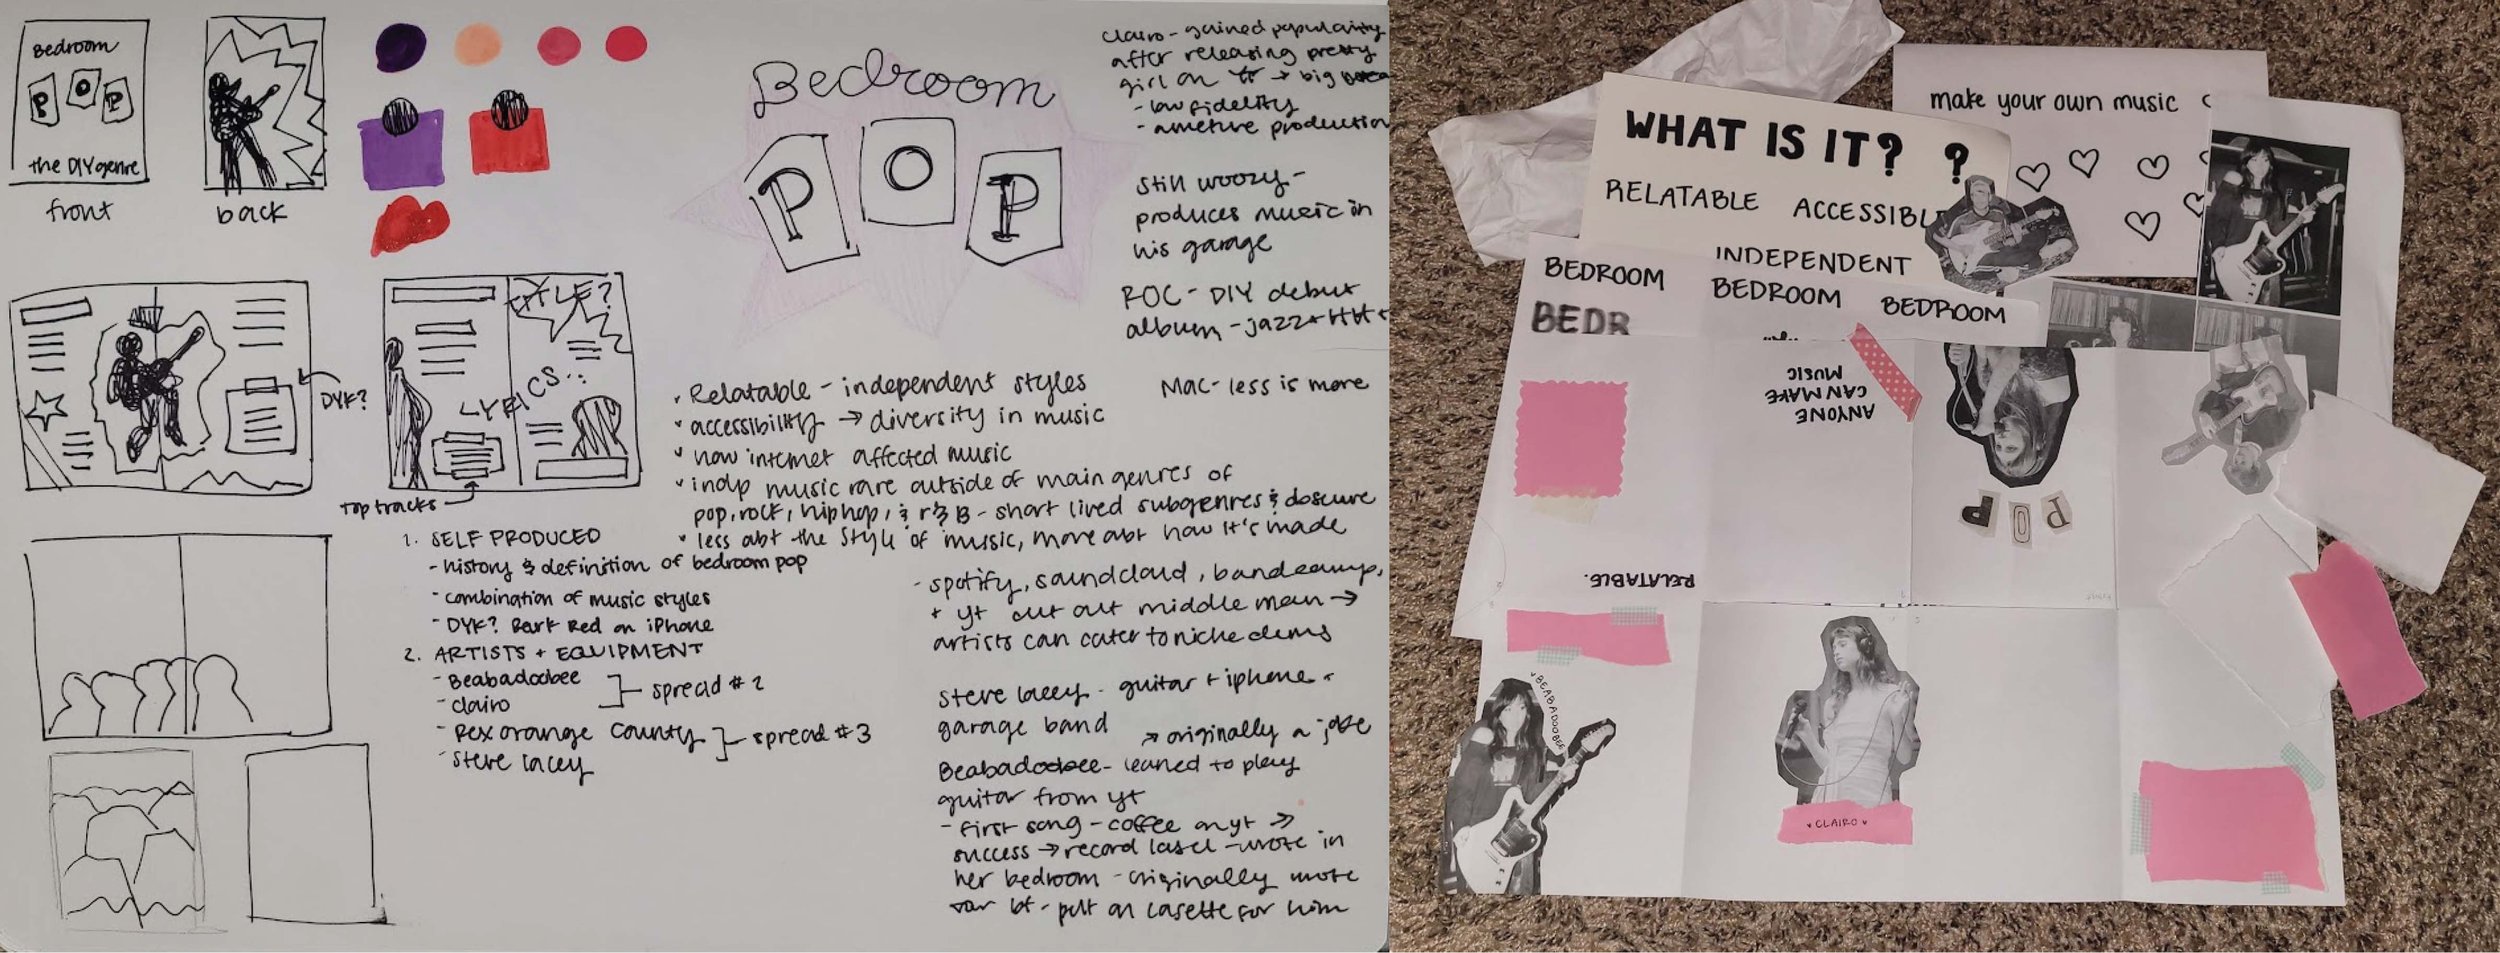 Bedroom
POP
the DIY genre
front
back
DYK?
TITLE?
LYRICS..
Top tracks
Bedroom
POP
Clairo - gained popularity
after releasing pretty
girl on yt → big
- low fidelity
- ameture production
Still woozy -
produces music in
his garage
ROC - DIY debut
album - jazz + HH +
Mac - less is more
Relatable - independent styles
accessibility → diversity in music
how internet affected music
indp music rare outside of main genres of
pop, rock, hip hop, & r&B - short lived subgenres & obscure
less abt the style of music, more abt how it's made
- spotify, soundcloud, bandcamp,
+ yt cut out middle man →
artists can cater to niche dems
Steve lacey - guitar + iphone -
garage band
→ originally a joke
Beabadoobee - leaned to play
guitar from yt
- first song - coffee on yt →
success → record label - wrote in
her bedroom - originally wrote
for bf - put on casette for him
1. SELF PRODUCED
- history & definition of bedroom pop
- combination of music styles
- DYK? Dark Red on iPhone
2. ARTISTS + EQUIPMENT
- Beabadoobee
- clairo
spread #2
- Rex orange county
- Steve lacey
spread #3
make your own music
WHAT IS IT? ?
RELATABLE ACCESSIBL
INDEPENDENT
BEDROOM BEDROOM BEDROOM
BEDR
ANYONE
CAN MAKE
MUSIC
POP
RELATABLE.
BEABADOOBEE
CLAIRO